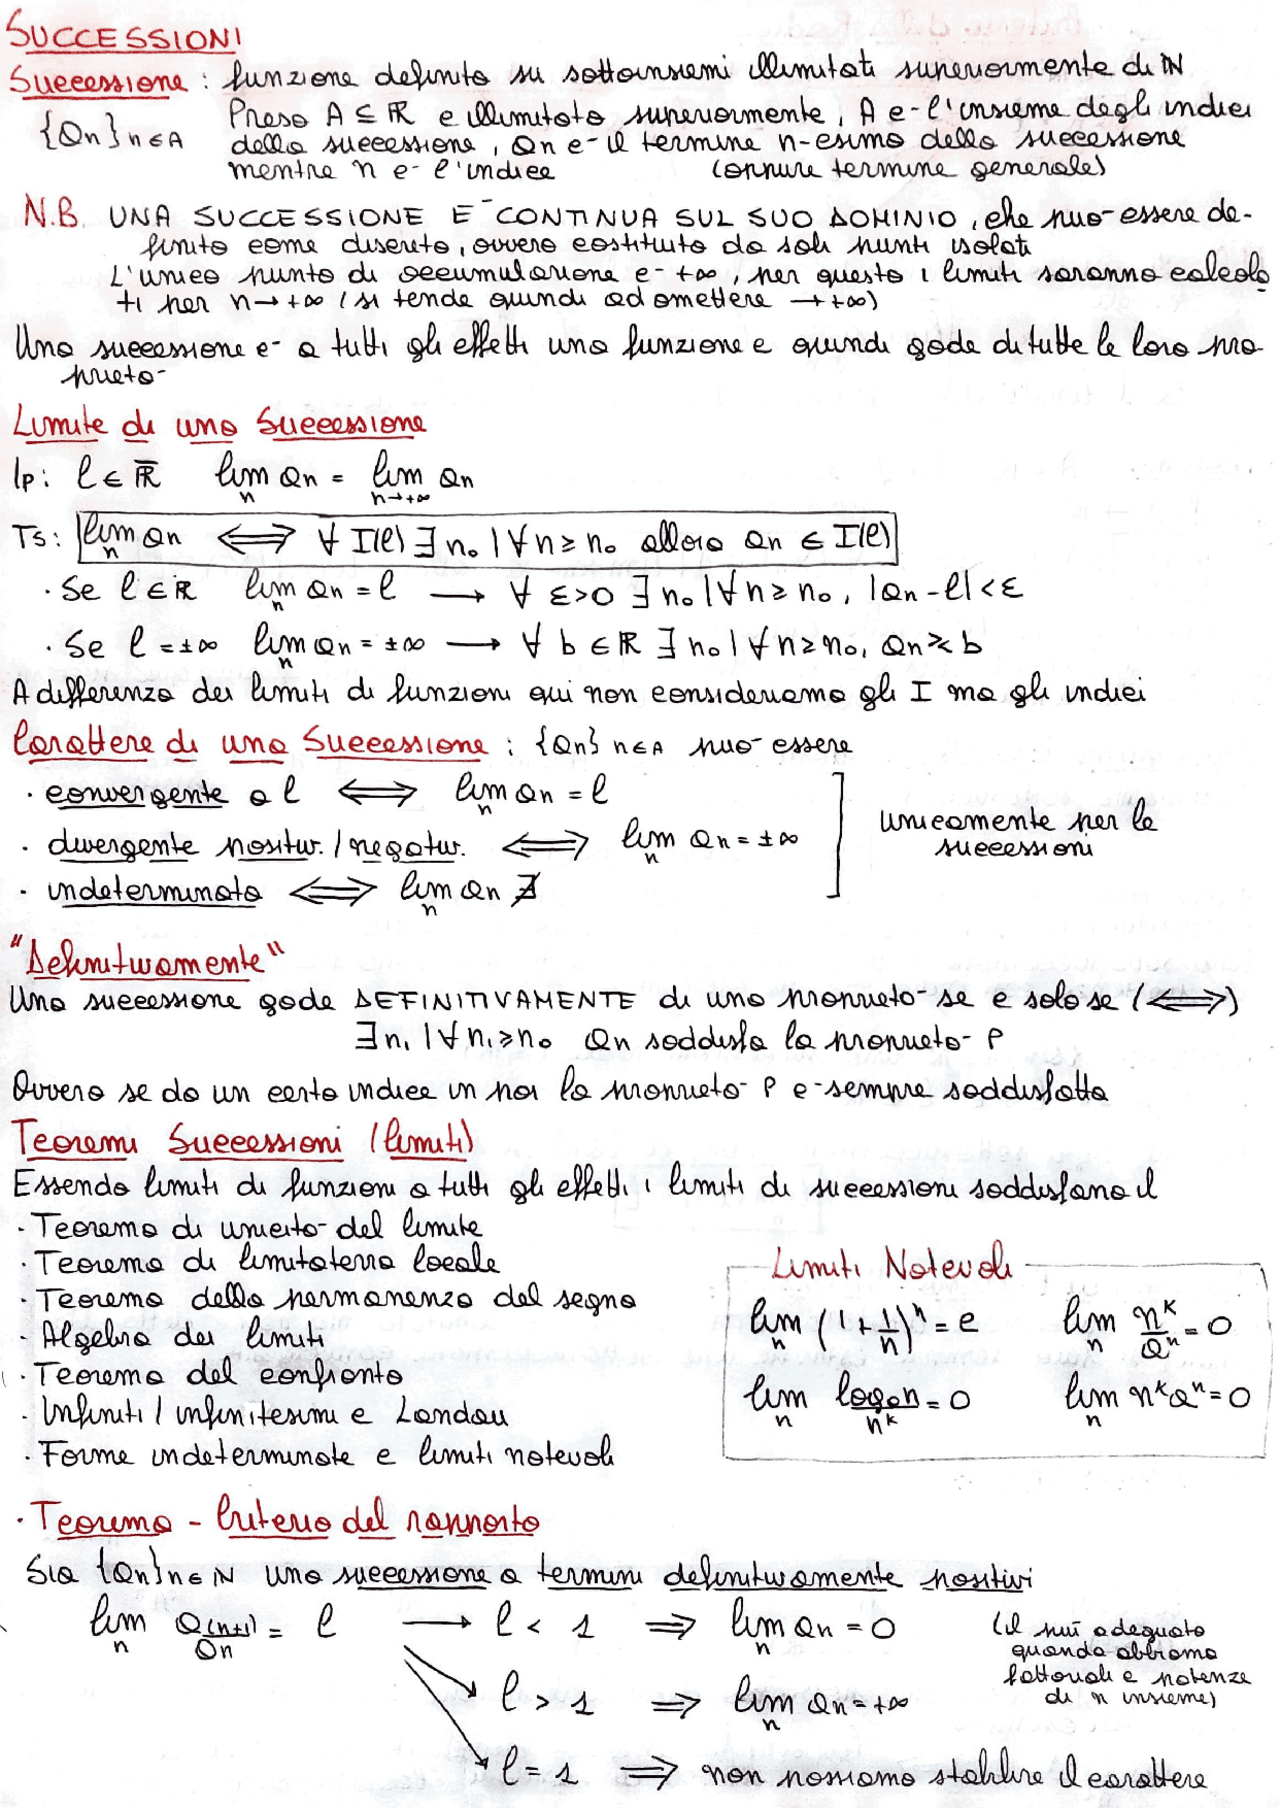 SUCCESSIONI
Successione : funzione definita su sottoinsiemi illimitati superiormente di ℕ
{an}n∈A Preso A ⊆ ℝ e illimitato superiormente, A e- l'insieme degli indici
della successione, an e- il termine n-esimo della successione
mentre n e- l'indice (oppure termine generale)
N.B. UNA SUCCESSIONE E- CONTINUA SUL SUO DOMINIO, che puo- essere de-
finito come discreto, ovvero costituito da soli punti isolati
L'unico punto di accumulazione e- +∞, per questo i limiti saranno calcola
ti per n→+∞ (si tende quindi ad omettere →+∞)
Una successione e- a tutti gli effetti una funzione e quindi gode di tutte le loro pro
prieta-
Limite di una Successione
Ip: l ∈ ℝ̅ lim_n an = lim_n→+∞ an
Ts: lim_n an ⟺ ∀ I(l) ∃ n₀ | ∀n ≥ n₀ allora an ∈ I(l)
· Se l ∈ ℝ lim_n an = l → ∀ ε>0 ∃ n₀ | ∀n ≥ n₀, |an - l| < ε
· Se l = ±∞ lim_n an = ±∞ → ∀ b ∈ ℝ ∃ n₀ | ∀ n ≥ n₀, an ≷ b
A differenza dei limiti di funzioni qui non consideriamo gli I ma gli indici
Carattere di una Successione : {an} n∈A puo- essere
· convergente a l ⟺ lim_n an = l
· divergente positiv. / negativ. ⟺ lim_n an = ±∞
unicamente per le
successioni
· indeterminata ⟺ lim_n an ∄
"Definitivamente"
Una successione gode DEFINITIVAMENTE di una proprieta- se e solo se (⟺)
∃ n₁ | ∀ n₁ ≥ n₀ an soddisfa la proprieta- P
Ovvero se da un certo indice in poi la proprieta- P e- sempre soddisfatta
Teoremi Successioni (limiti)
Essendo limiti di funzioni a tutti gli effetti i limiti di successioni soddisfano il
· Teorema di unicita- del limite
· Teorema di limitatezza locale
· Teorema della permanenza del segno
· Algebra dei limiti
· Teorema del confronto
· Infiniti / infinitesimi e Landau
· Forme indeterminate e limiti notevoli
Limiti Notevoli
lim_n (1+1/n)^n = e lim_n n^k/a^n = 0
lim_n logan/n^k = 0 lim_n n^k a^n = 0
· Teorema - Criterio del rapporto
Sia {an}n∈ℕ una successione a termini definitivamente positivi
lim_n a(n+1)/an = l → l < 1 ⟹ lim_n an = 0
(il piu- adeguato
quando abbiamo
fattoriali e potenze
di n insieme)
l > 1 ⟹ lim_n an = +∞
l = 1 ⟹ non possiamo stabilire il carattere